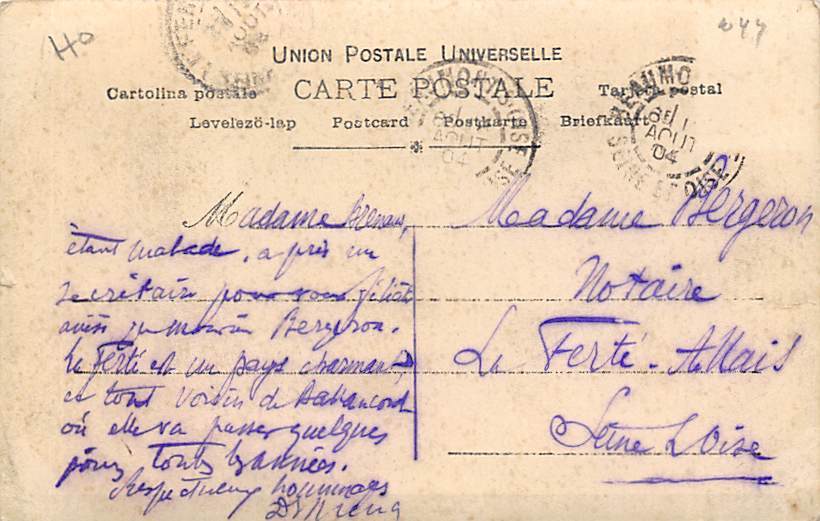 40
UNION POSTALE UNIVERSELLE
CARTE POSTALE
Cartolina postale
Tarjeta postal
Levelezö-lap Postcard Postkarte Briefkaart
BEAUMONT S OISE
AOUT
04
BEAUMO
AOUT
04
SEINE ET OISE
Madame
étant malade, a pris un
secrétaire pour vous
ainsi que Bergeron.
La Ferté est un pays charmant
et tout voisin de
où elle va passer quelques
jours tous les années.
Respectueux hommages
Madame Bergeron
Notaire
La Ferté-Allais
Seine & Oise